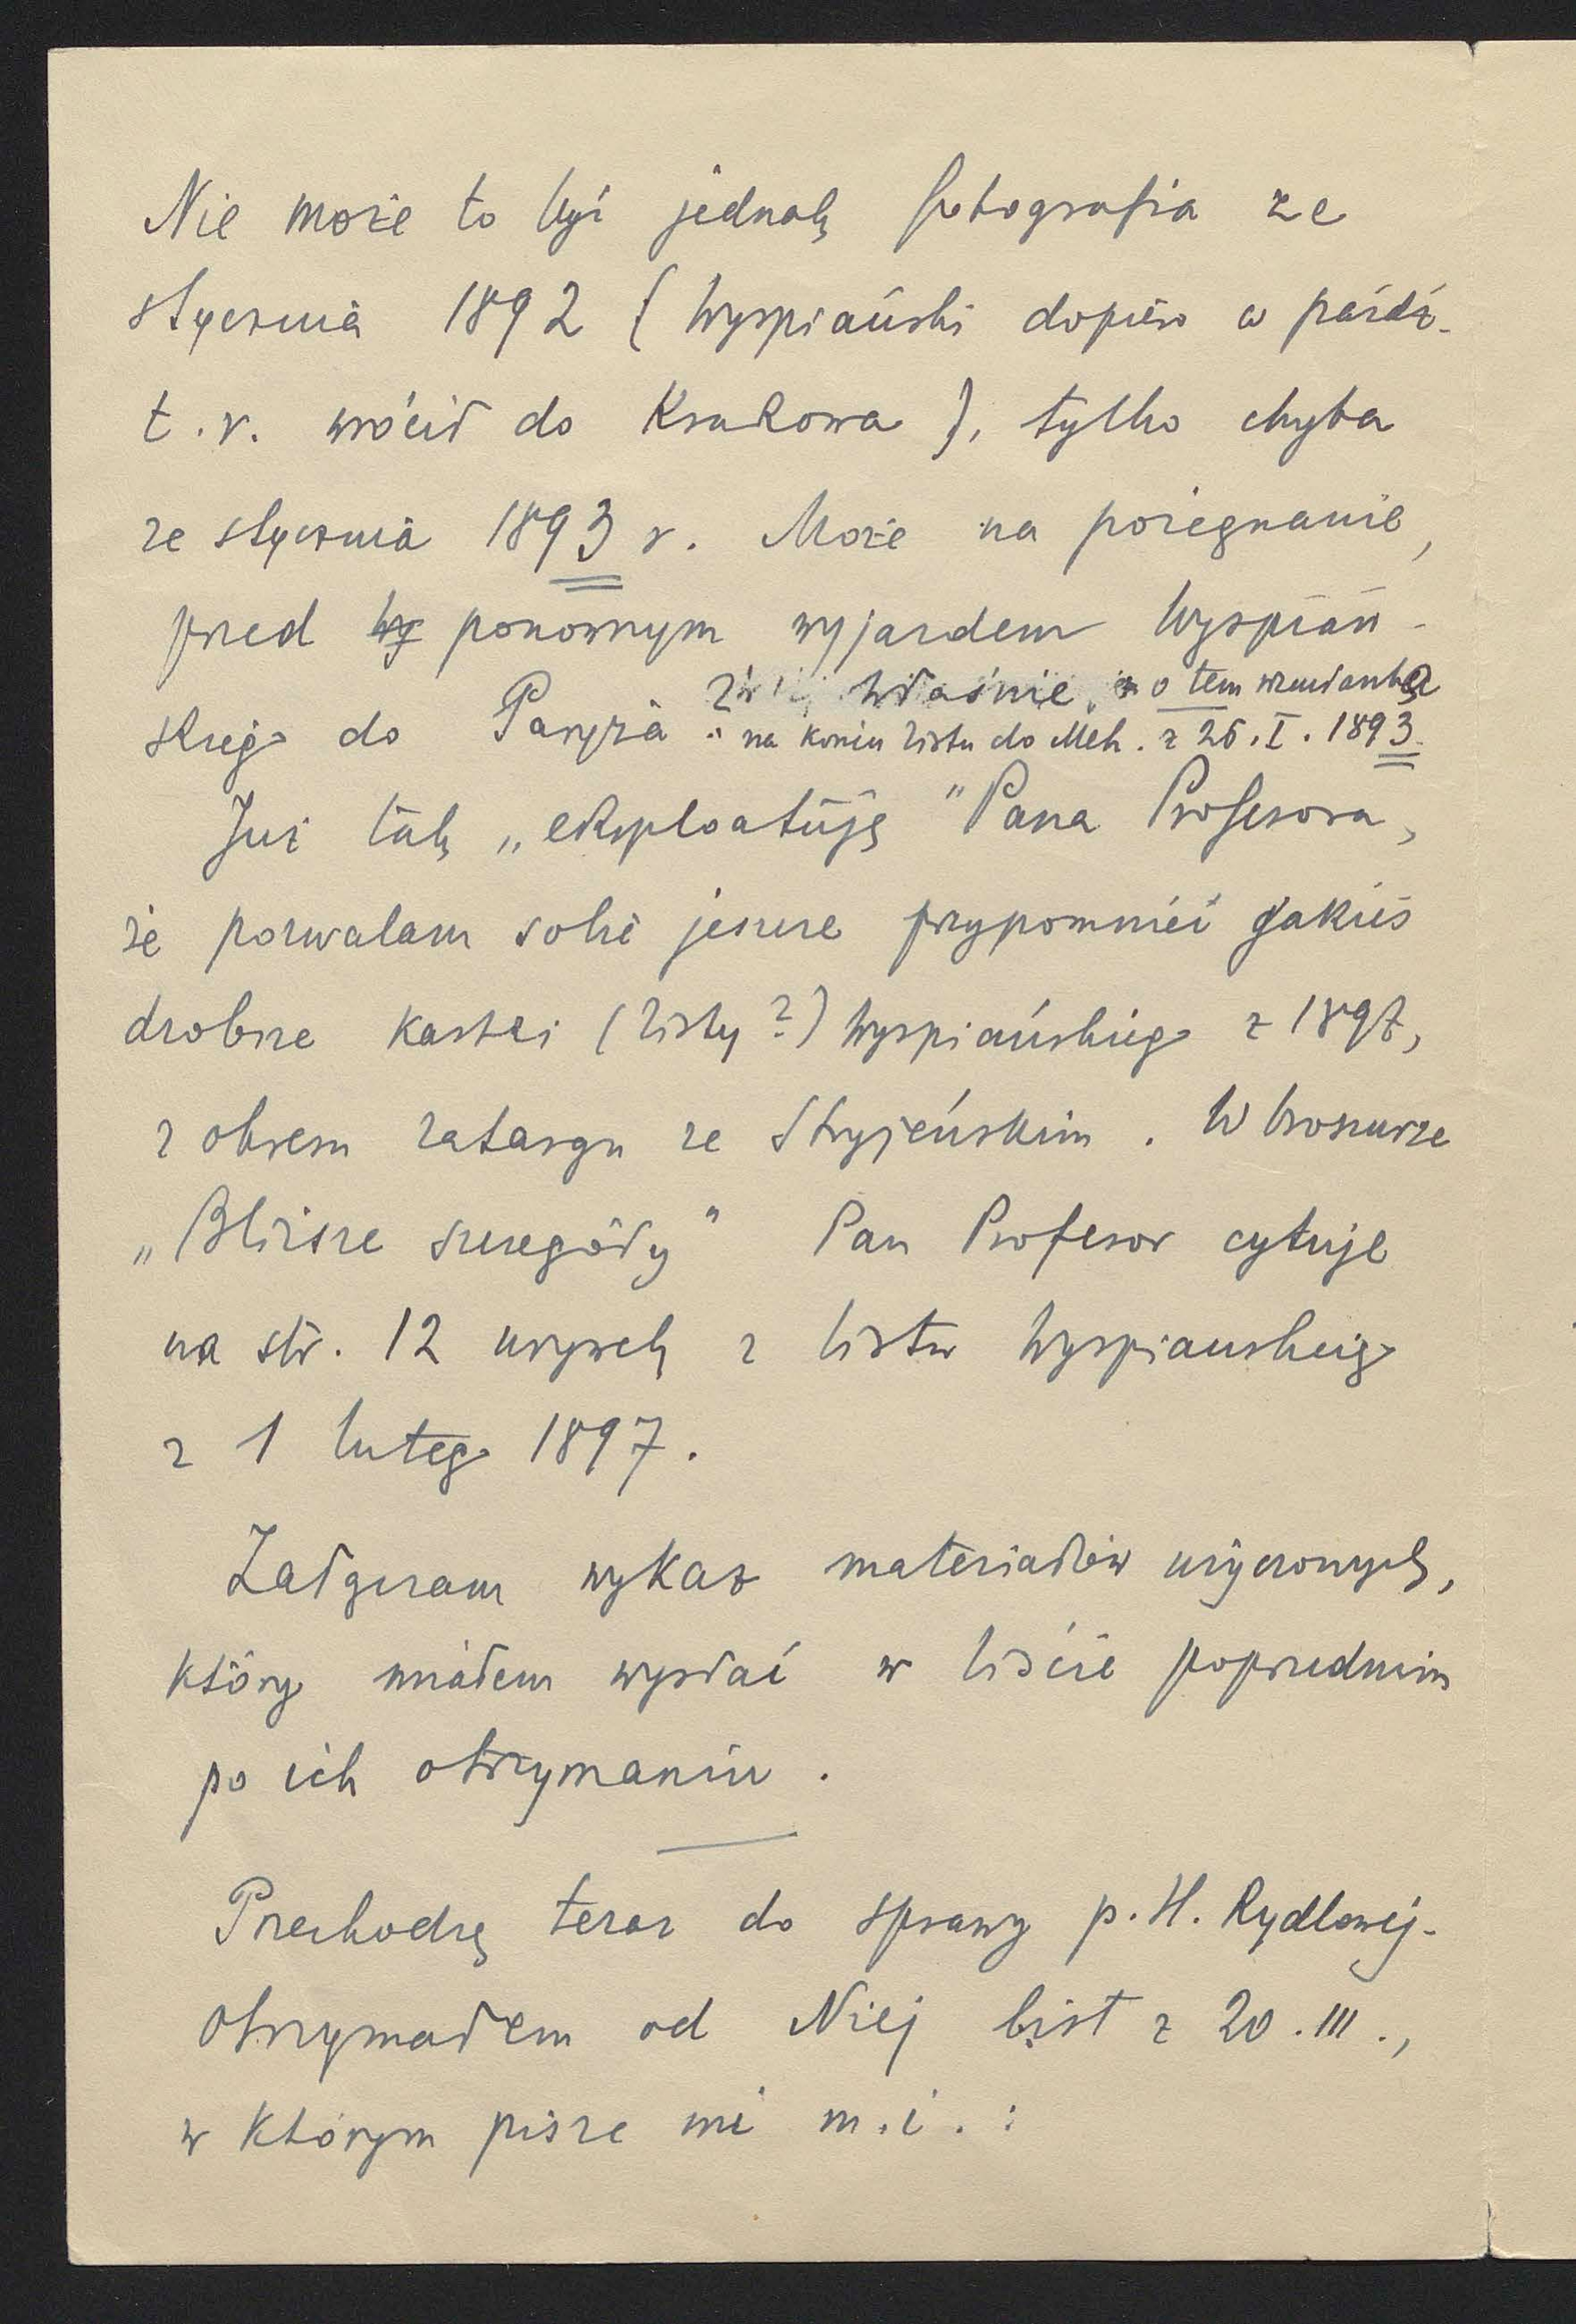 Nie może to być jednak fotografia ze
stycznia 1892 (Wyspiański dopiero w paźdz.
t.r. wrócił do Krakowa), tylko chyba
ze stycznia 1893 r. Może na pożegnanie,
przed ponownym wyjazdem Wyspiań-
właśnie, o tem wzmianka
skiego do Paryża. na końcu listu do Meh. z 26.I.1893.
Już tak „eksploatuję" Pana Profesora,
że pozwalam sobie jeszcze przypomnieć jakieś
drobne kartki (listy?) Wyspiańskiego z 1897,
z okresu zatargu ze Stryjeńskim. W broszurze
„Bliższe szczegóły" Pan Profesor cytuje
na str. 12 urywek z listu Wyspiańskiego
z 1 lutego 1897.
Załączam wykaz materiałów użyczonych,
który miałem wysłać w liście poprzednim
po ich otrzymaniu.
Przechodzę teraz do sprawy p. H. Rydlowej.
Otrzymałem od Niej list z 20.III.,
w którym pisze mi m.i.: